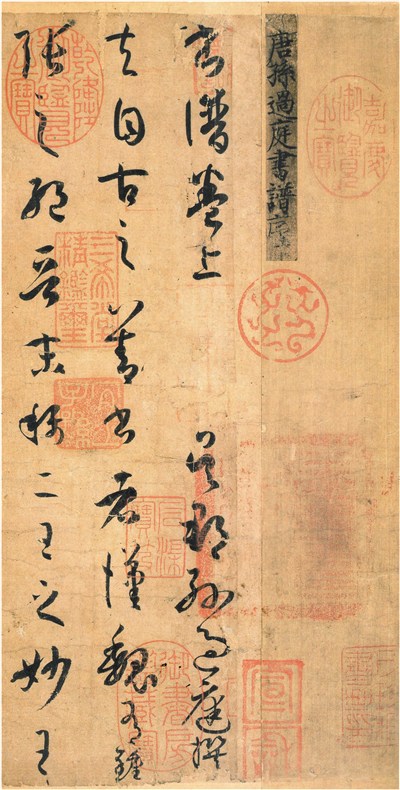 唐孫過庭書譜序
書譜卷上 吳郡孫過庭撰
夫自古之善書者漢魏有鍾
張之絕晉末稱二王之妙王
嘉慶御覽之寶
乾隆御覽之寶
三希堂精鑑璽
宜子孫
石渠寶笈